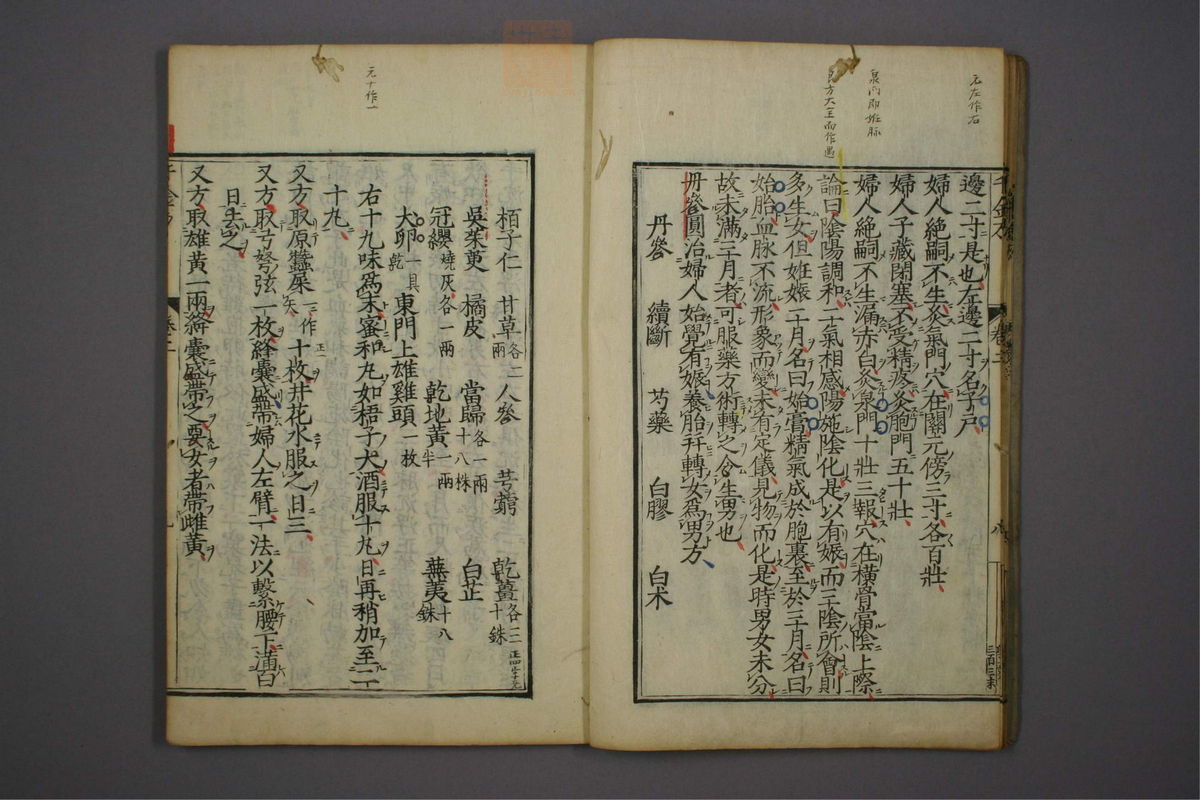 元左作右
泉門即姙脉
良方大全而作遇
邊二寸是也左邊二寸名子戸
婦人絶嗣不生灸氣門穴在關元傍三寸各百壯
婦人子藏閉塞不受精疼灸胞門五十壯
婦人絶嗣不生漏赤白灸泉門十壯三報穴在横骨當陰上際
論曰陰陽調和二氣相感陽施陰化是以有娠而三陰所會則
多生女但姙娠二月名曰始膏精氣成於胞裏至於三月名曰
始胎血脉不流形象而變未有定儀見物而化是時男女未分
故未滿三月者可服藥方術轉之令生男也
丹參圓治婦人始覺有娠養胎并轉女爲男方
丹參 續斷 芍藥 白膠 白朮
元十作一
栢子仁 甘草各二兩 人參 芎藭 乾薑各三十銖
吳茱萸 橘皮 當歸各一兩十八株 白芷
冠纓燒灰各一兩 乾地黄一兩半 蕪荑十八銖
犬卵一具乾 東門上雄雞頭一枚
右十九味爲末蜜和丸如梧子大酒服十丸日再稍加至二
十丸
又方取原蠶屎一作矢 十枚井花水服之日三
又方取弓弩弦一枚絳囊盛帶婦人左臂一法以繫腰下滿百
日去之
又方取雄黄一兩絳囊盛帶之要女者帶雌黄